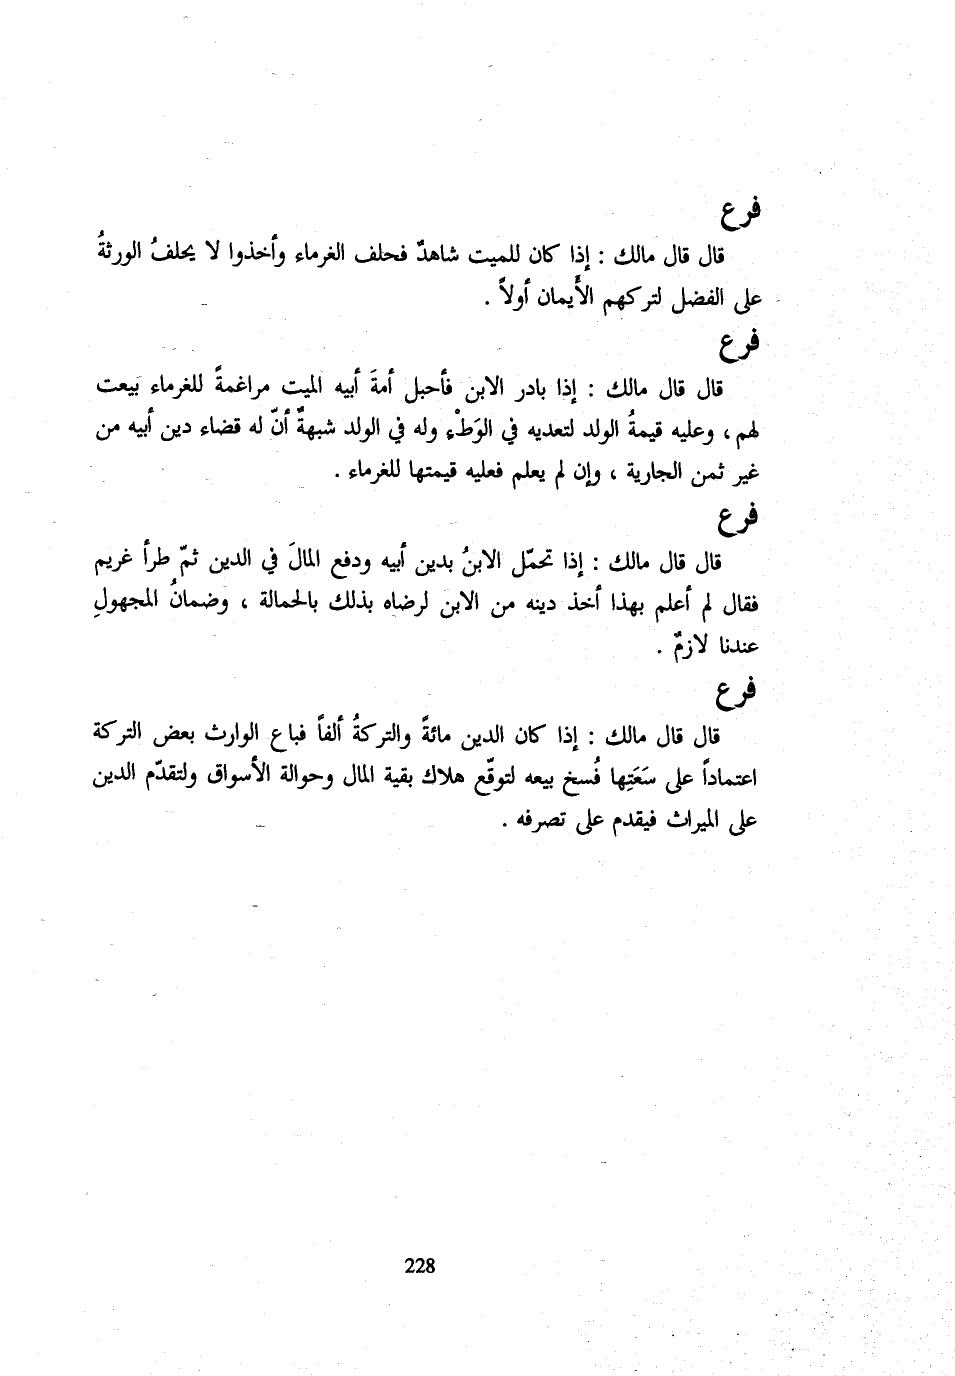 فرع
قال قال مالك : إذا كان للميت شاهدٌ فحلف الغرماء وأخذوا لا يحلفُ الورثةُ
على الفضل لتركهم الأَيمان أولاً .
فرع
قال قال مالك : إذا بادر الابن فأحبل أمةَ أبيه الميت مراغمةً للغرماء بيعت
لهم ، وعليه قيمةُ الولد لتعديه في الوَطْء وله في الولد شبهةٌ أنّ له قضاء دين أبيه من
غير ثمن الجارية ، وإن لم يعلم فعليه قيمتها للغرماء .
فرع
قال قال مالك : إذا تحمّل الابنُ بدين أبيه ودفع المالَ في الدين ثمّ طرأ غريم
فقال لم أعلم بهذا أخذ دينه من الابن لرضاه بذلك بالحمالة ، وضمانُ المجهولِ
عندنا لازمٌ .
فرع
قال قال مالك : إذا كان الدين مائةً والتركةُ ألفاً فباع الوارث بعض التركة
اعتماداً على سَعَتِها فُسخ بيعه لتوقّع هلاك بقية المال وحوالة الأسواق ولتقدّم الدين
على الميراث فيقدم على تصرفه .
228